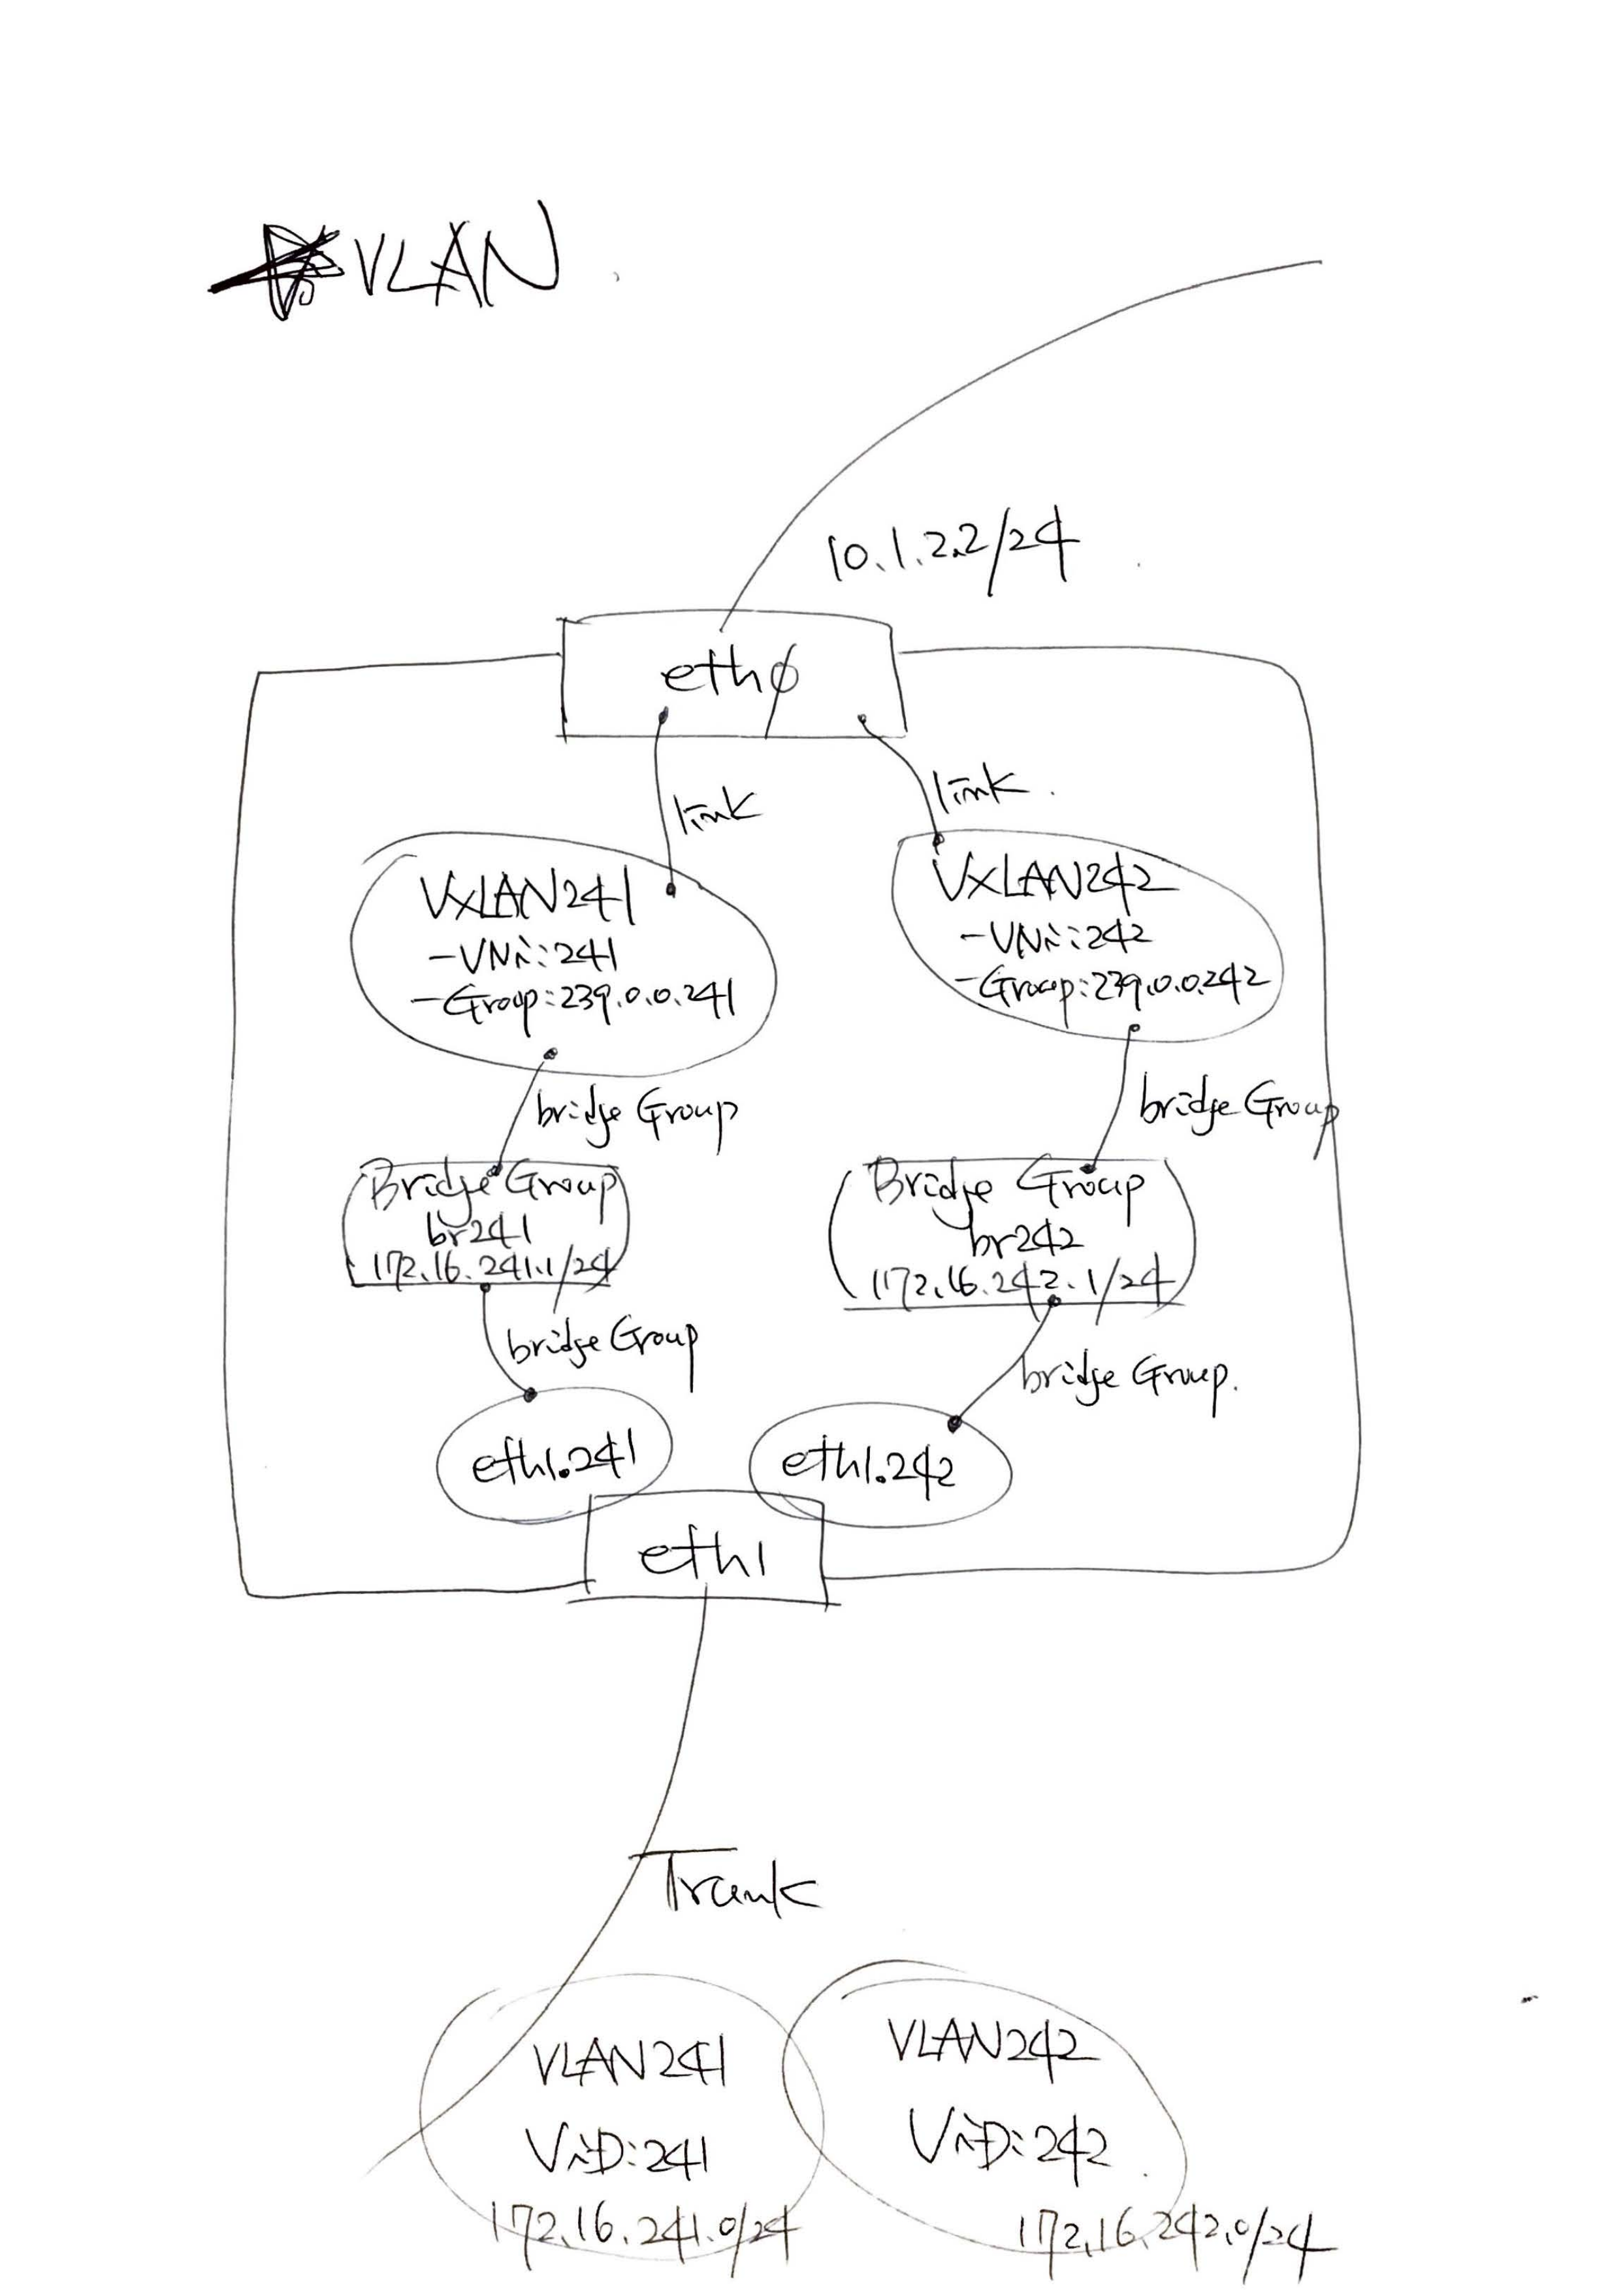 VLAN
10.1.2.2/24
ethø
link
link
VxLAN241
-VNi:241
-Group:239.0.0.241
VxLAN242
-VNi:242
-Group:239.0.0.242
bridge Group
bridge Group
Bridge Group
br241
172.16.241.1/24
Bridge Group
br242
172.16.242.1/24
bridge Group
bridge Group.
eth1.241
eth1.242
eth1
Trunk
VLAN241
ViD:241
172.16.241.0/24
VLAN242
ViD:242
172.16.242.0/24